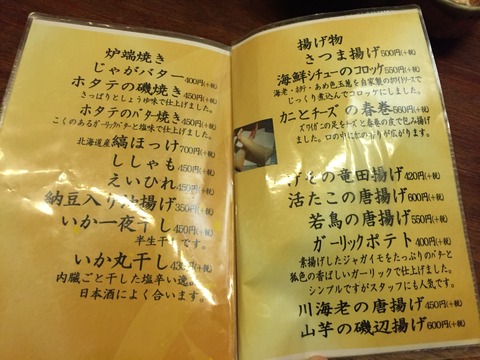 炉端焼き
じゃがバター 400円(+税)
ホタテの磯焼き 450円(+税)
さっぱりとしょうゆ味で仕上げました。
ホタテのバター焼き 450円(+税)
こくのあるガーリックバターと塩味で仕上げました。
北海道産 縞ほっけ 700円(+税)
ししゃも 450円(+税)
えいひれ 450円(+税)
納豆入り油揚げ 350円(+税)
いか一夜干し 450円(+税)
半生干しです。
いか丸干し 430円(+税)
内臓ごと干した塩辛い逸
日本酒によく合います。
揚げ物
さつま揚げ 500円(+税)
海鮮シチューのコロッケ 550円(+税)
海老・ホタテ・あめ色玉葱を自家製のホワイトソースで
じっくり煮込んでコロッケにしました。
カニとチーズの春巻 560円(+税)
ズワイガニの足をチーズと春巻の皮で包み揚げ
ました。口の中に旨みが広がります。
げその竜田揚げ 420円(+税)
活たこの唐揚げ 600円(+税)
若鳥の唐揚げ 550円(+税)
ガーリックポテト 400円(+税)
素揚げしたジャガイモをたっぷりのバターと
狐色の香ばしいガーリックで仕上げました。
シンプルですがスタッフにも人気です。
川海老の唐揚げ 450円(+税)
山芋の磯辺揚げ 600円(+税)